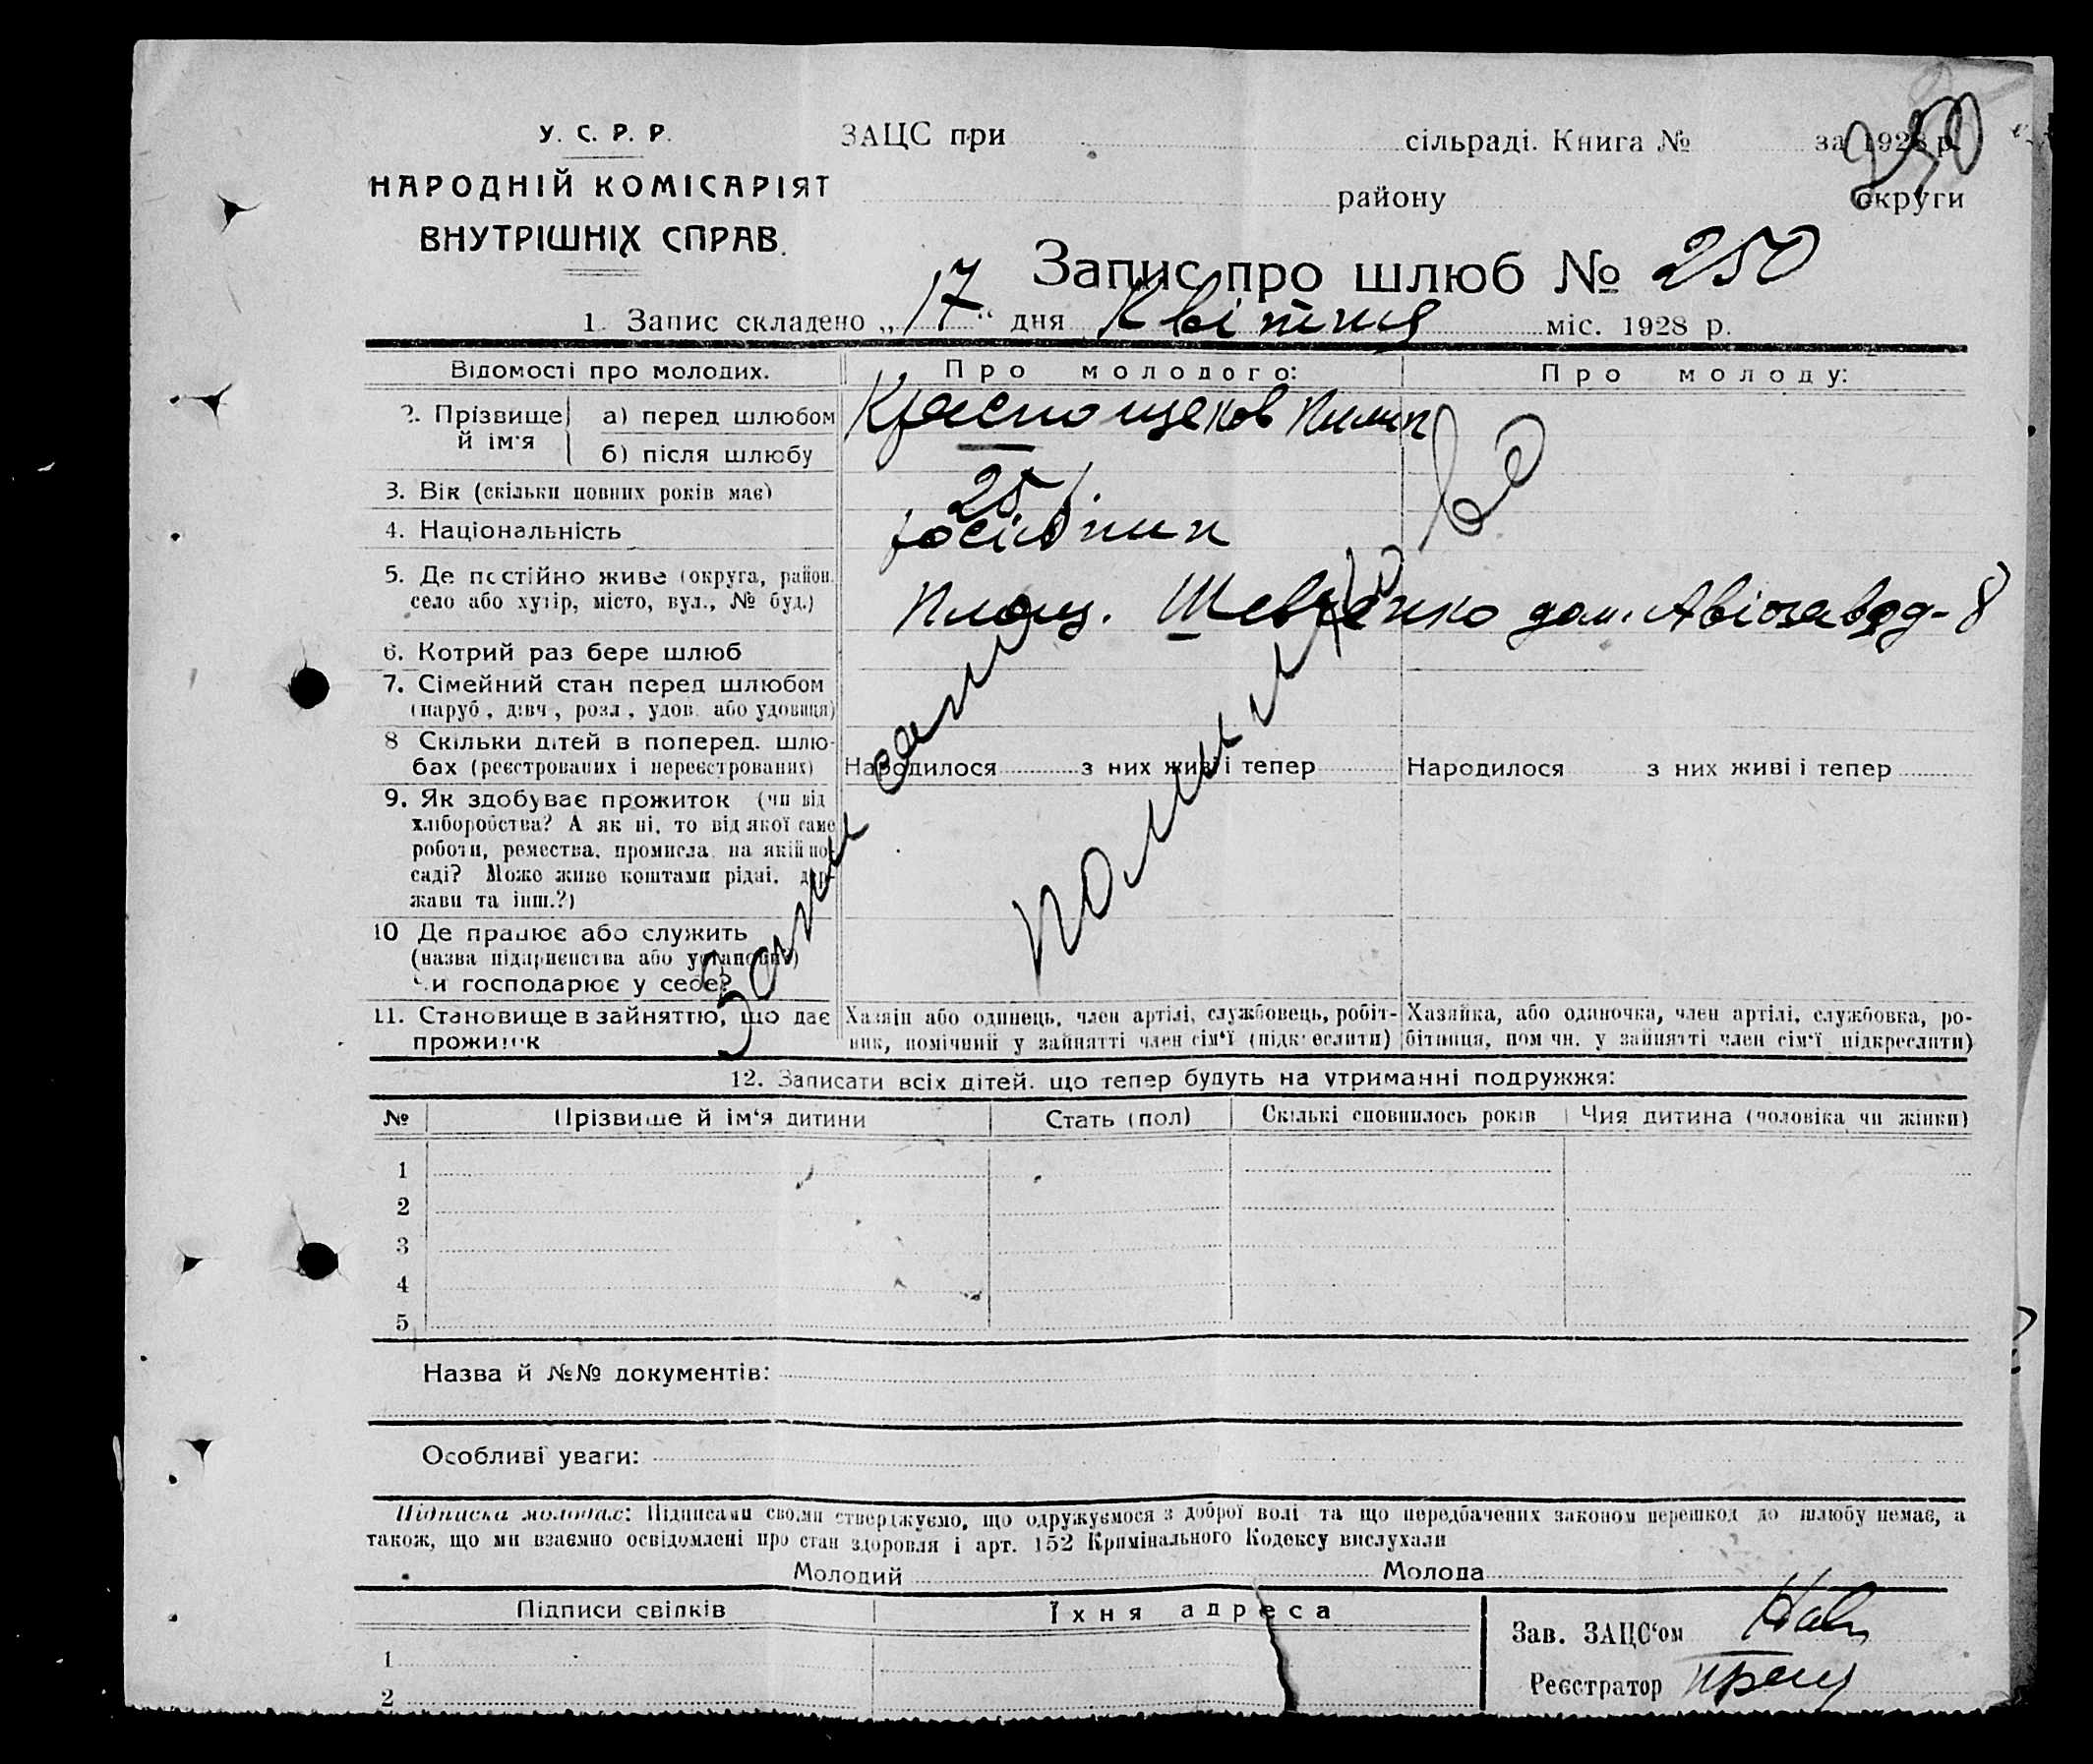 У. С. Р. Р.
НАРОДНІЙ КОМІСАРІЯТ
ВНУТРІШНІХ СПРАВ.
ЗАЦС при сільраді. Книга № за 1928 р.
250
району округи
Запис про шлюб № 250
1. Запис складено „17“ дня Квітня міс. 1928 р.
Відомості про молодих. Про молодого: Про молоду:
2. Прізвище й ім'я а) перед шлюбом Краснощеков Пилип
б) після шлюбу
3. Вік (скільки повних років має) 25
4. Національність росіянин
5. Де постійно живе (округа, район, село або хутір, місто, вул., № буд.) Площ. Шевченко дом. Авіозавод-8
6. Котрий раз бере шлюб
7. Сімейний стан перед шлюбом (паруб., дівч., розл., удов. або удовиця)
8 Скільки дітей в поперед. шлюбах (реєстрованих і нереєстрованих) Народилося з них живі і тепер Народилося з них живі і тепер
9. Як здобуває прожиток (чи від
хліборобства? А як ні, то від якої саме
роботи, ремества, промисла, на якій по-
саді? Може живе коштами рідні, дер-
жави та інш.?)
10 Де працює або служить
(назва підприємства або установи)
чи господарює у себе?
Записано помилково
11. Становище в зайняттю, що дає прожиток Хазяін або одинець, член артілі, службовець, робіт-
ник, помічний у зайнятті член сім'ї (підкреслити)
Хазяйка, або одиночка, член артілі, службовка, ро-
бітниця, помічн. у зайнятті член сім'ї підкреслити)
12. Записати всіх дітей, що тепер будуть на утриманні подружжя:
№ Прізвище й ім'я дитини Стать (пол) Скількі сповнилось років Чия дитина (чоловіка чи жінки)
1
2
3
4
5
Назва й №№ документів:
Особливі уваги:
Підписка молодих: Підписами своїми стверджуємо, що одружуємося з доброї волі та що передбачених законом перешкод до шлюбу немає, а
також, що ми взаємно освідомлені про стан здоровля і арт. 152 Крімінального Кодексу вислухали
Молодий Молода
Підписи свідків Їхня адреса
1
2
Зав. ЗАЦС'ом
Реєстратор